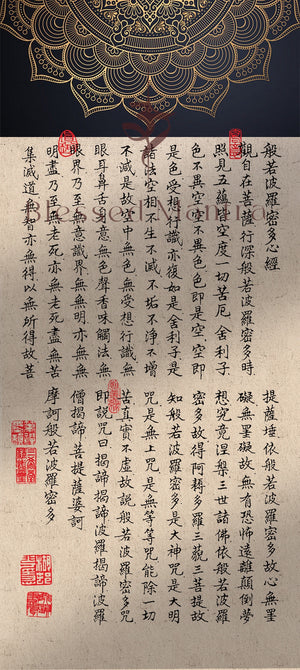 般若波羅密多心經
觀自在菩薩行深般若波羅密多時
照見五蘊皆空度一切苦厄舍利子
色不異空空不異色色即是空空即
是色受想行識亦復如是舍利子是
諸法空相不生不滅不垢不淨不增
不減是故空中無色無受想行識無
眼耳鼻舌身意無色聲香味觸法無
眼界乃至無意識界無無明亦無無
明盡乃至無老死亦無老死盡無苦
集滅道無智亦無得以無所得故菩
提薩埵依般若波羅密多故心無罣
礙無罣礙故無有恐怖遠離顛倒夢
想究竟涅槃三世諸佛依般若波羅
密多故得阿耨多羅三藐三菩提故
知般若波羅密多是大神咒是大明
咒是無上咒是無等等咒能除一切
苦真實不虛故說般若波羅密多咒
即說咒曰揭諦揭諦波羅揭諦波羅
僧揭諦菩提薩婆訶
摩訶般若波羅密多
Blessed Mantra